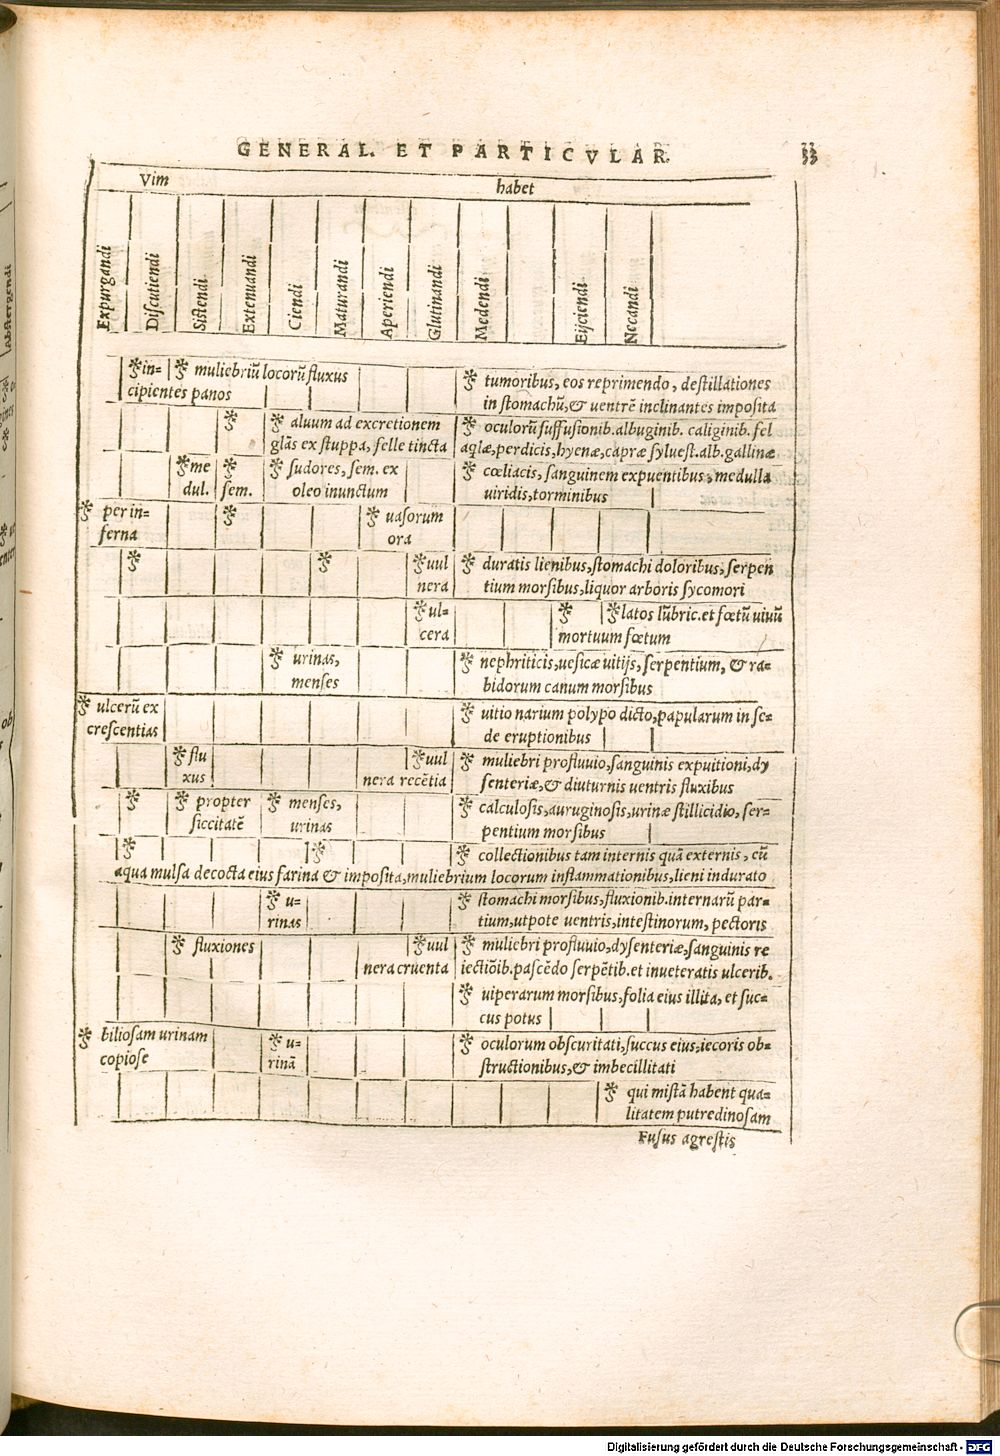 GENERAL. ET PARTICVLAR.
33
Vim habet
Abstergendi
Expurgandi
Discutiendi
Sistendi
Extenuandi
Ciendi
Maturandi
Aperiendi
Glutinandi
Medendi
Eijciendi
Necandi
in= muliebriũ locorũ fluxus
cipientes panos
tumoribus, eos reprimendo, destillationes
in stomachũ, & ventrẽ inclinantes imposita
aluum ad excretionem
glãs ex stuppa, felle tincta
oculorũ suffusionib. albuginib. caliginib. fel
aqlæ, perdicis, hyenæ, capræ syluest. alb. gallinæ
me
dul.
sem.
sudores, sem. ex
oleo inunctum
cœliacis, sanguinem expuentibus, medulla
uiridis, torminibus
per in=
ferna
uasorum
ora
uul
nera
duratis lienibus, stomachi doloribus, serpen
tium morsibus, liquor arboris sycomori
ul=
cera
latos lũbric. et fœtũ uiuũ
mortuum fœtum
urinas,
menses
nephriticis, uesicæ uitijs, serpentium, & ra=
bidorum canum morsibus
ulcerũ ex
crescentias
uitio narium polypo dicto, papularum in se=
de eruptionibus
flu
xus
uul
nera recẽtia
muliebri profluuio, sanguinis expuitioni, dy
senteriæ, & diuturnis uentris fluxibus
propter
siccitatẽ
menses,
urinas
calculosis, auruginosis, urinæ stillicidio, ser=
pentium morsibus
collectionibus tam internis quã externis, cũ
aqua mulsa decocta eius farina & imposita, muliebrium locorum inflammationibus, lieni indurato
u=
rinas
stomachi morsibus, fluxionib. internarũ par=
tium, utpote uentris, intestinorum, pectoris
fluxiones
uul
nera cruenta
muliebri profluuio, dysenteriæ, sanguinis re
iectiõib. pascẽdo serpẽtib. et inueteratis ulcerib.
uiperarum morsibus, folia eius illita, et suc=
cus potus
biliosam urinam
copiose
u=
rinã
oculorum obscuritati, succus eius, iecoris ob=
structionibus, & imbecillitati
qui mistã habent qua=
litatem putredinosam
Fusus agrestis
Digitalisierung gefördert durch die Deutsche Forschungsgemeinschaft - DFG